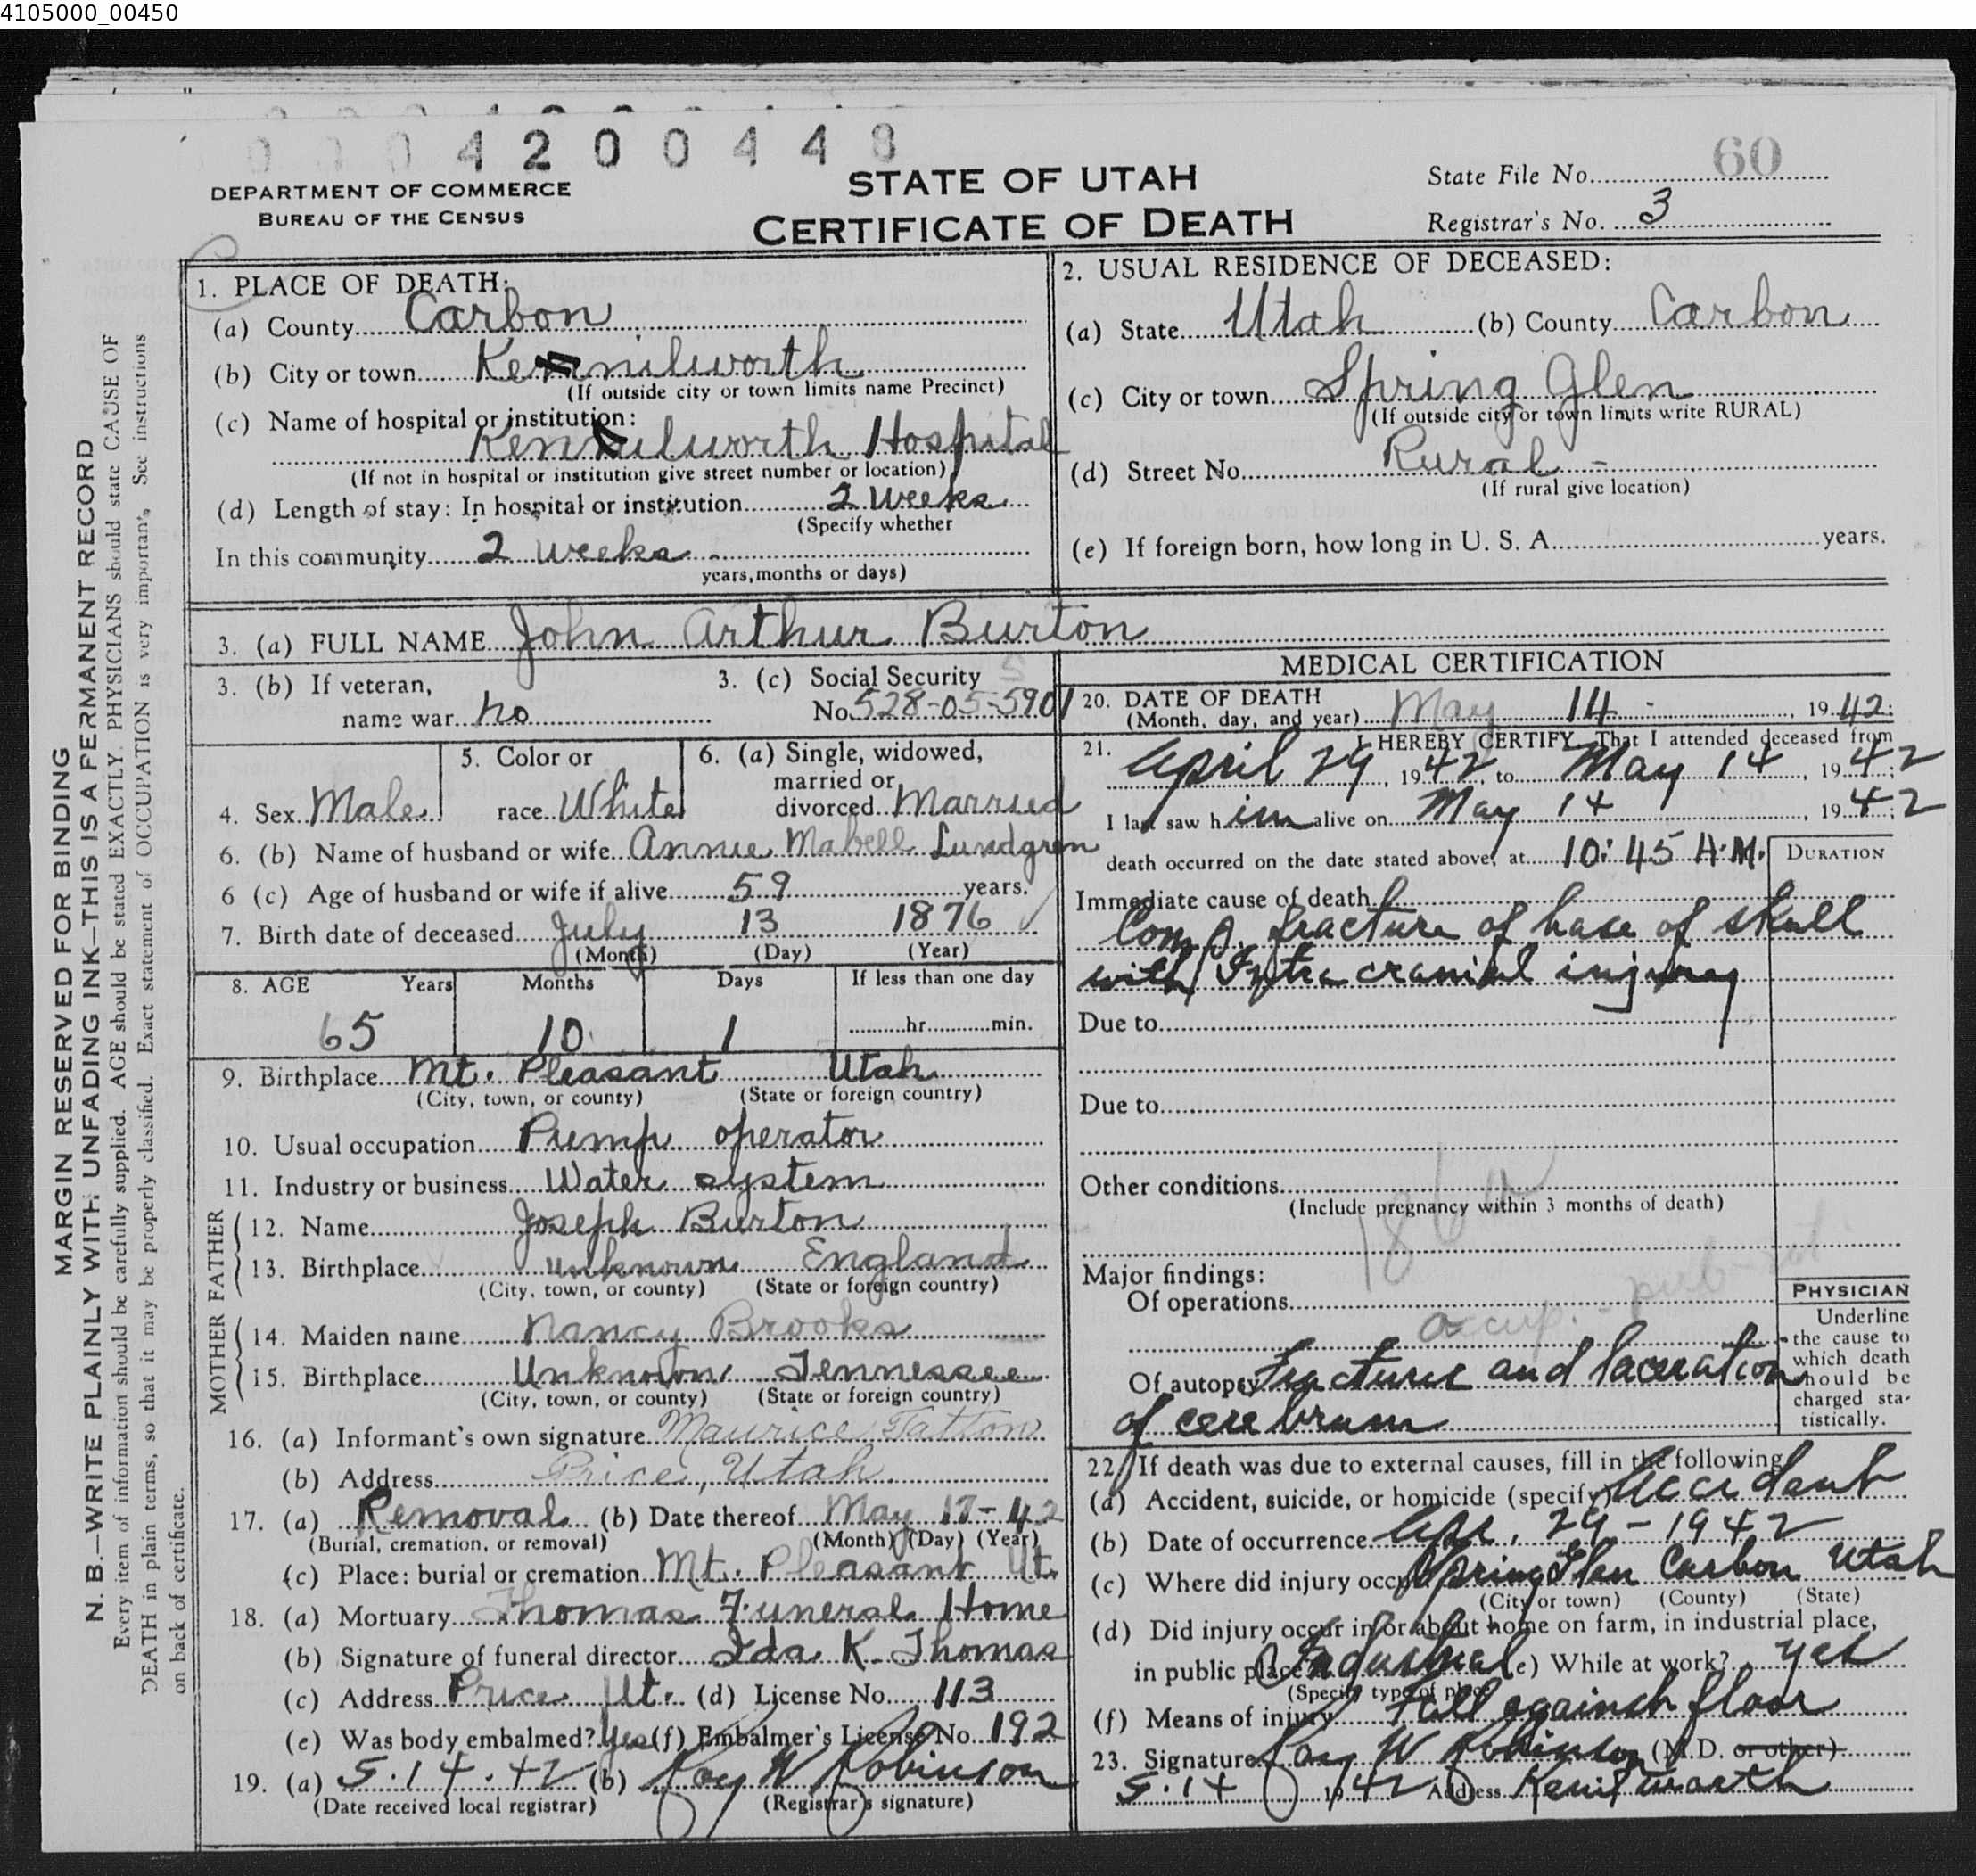 4105000_00450
0004200448
60
DEPARTMENT OF COMMERCE
BUREAU OF THE CENSUS
STATE OF UTAH
CERTIFICATE OF DEATH
State File No.
Registrar's No. 3
MARGIN RESERVED FOR BINDING
N. B.—WRITE PLAINLY WITH UNFADING INK—THIS IS A PERMANENT RECORD
Every item of information should be carefully supplied. AGE should be stated EXACTLY. PHYSICIANS should state CAUSE OF
DEATH in plain terms, so that it may be properly classified. Exact statement of OCCUPATION is very important. See instructions
on back of certificate.
1. PLACE OF DEATH:
(a) County Carbon
(b) City or town Kenilworth
(If outside city or town limits name Precinct)
(c) Name of hospital or institution:
Kenilworth Hospital
(If not in hospital or institution give street number or location)
(d) Length of stay: In hospital or institution 2 weeks
(Specify whether
In this community 2 weeks
years, months or days)
2. USUAL RESIDENCE OF DECEASED:
(a) State Utah (b) County Carbon
(c) City or town Spring Glen
(If outside city or town limits write RURAL)
(d) Street No. Rural -
(If rural give location)
(e) If foreign born, how long in U. S. A. years.
3. (a) FULL NAME John Arthur Burton
3. (b) If veteran,
name war no
3. (c) Social Security
No. 528-05-5901
4. Sex Male
5. Color or
race White
6. (a) Single, widowed,
married or
divorced Married
6. (b) Name of husband or wife Annie Mabell Lundgren
6 (c) Age of husband or wife if alive 59 years.
7. Birth date of deceased July 13 1876
(Month) (Day) (Year)
8. AGE Years Months Days If less than one day
65 10 1 hr. min.
9. Birthplace Mt. Pleasant Utah
(City, town, or county) (State or foreign country)
10. Usual occupation Pump operator
11. Industry or business Water system
FATHER
12. Name Joseph Burton
13. Birthplace unknown England
(City, town, or county) (State or foreign country)
MOTHER
14. Maiden name Nancy Brooks
15. Birthplace Unknown Tennessee
(City, town, or county) (State or foreign country)
16. (a) Informant's own signature Maurice Tatton
(b) Address Price, Utah
17. (a) Removal (b) Date thereof May 17-42
(Burial, cremation, or removal) (Month) (Day) (Year)
(c) Place: burial or cremation Mt. Pleasant Ut.
18. (a) Mortuary Thomas Funeral Home
(b) Signature of funeral director Ida K. Thomas
(c) Address Price Ut. (d) License No. 113
(e) Was body embalmed? Yes (f) Embalmer's License No. 192
19. (a) 5.14.42 (b) Roy W Robinson
(Date received local registrar) (Registrar's signature)
MEDICAL CERTIFICATION
20. DATE OF DEATH
(Month, day, and year) May 14, 1942
21. I HEREBY CERTIFY, That I attended deceased from
April 29, 1942, to May 14, 1942
I last saw him alive on May 14, 1942
death occurred on the date stated above, at 10:45 A.M.
DURATION
Immediate cause of death
Comp. fracture of base of skull
with Intra cranial injury
Due to
Due to
Other conditions
(Include pregnancy within 3 months of death)
Major findings:
Of operations
occup.
Of autopsy fracture and laceration
of cerebrum
PHYSICIAN
Underline
the cause to
which death
should be
charged sta-
tistically.
22. If death was due to external causes, fill in the following
(a) Accident, suicide, or homicide (specify) Accident
(b) Date of occurrence Apr. 29-1942
(c) Where did injury occur Spring Glen Carbon Utah
(City or town) (County) (State)
(d) Did injury occur in or about home on farm, in industrial place,
in public place Industrial (e) While at work? yes
(Specify type of place)
(f) Means of injury Fall against floor
23. Signature Roy W Robinson (M.D. or other)
5.14 1942 Address Kenilworth